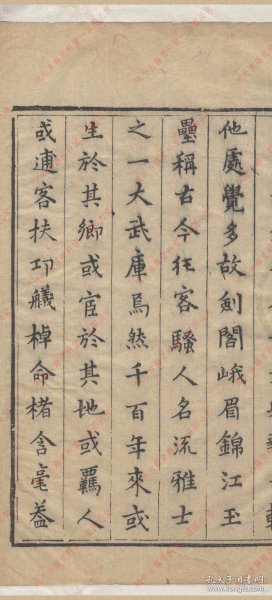 他處覺多故劍閣峨眉錦江玉
壘稱古今狂客騷人名流雅士
之一大武庫焉然千百年來或
生於其鄉或宦於其地或羈人
或逋客扶筇艤棹命楮含毫盖